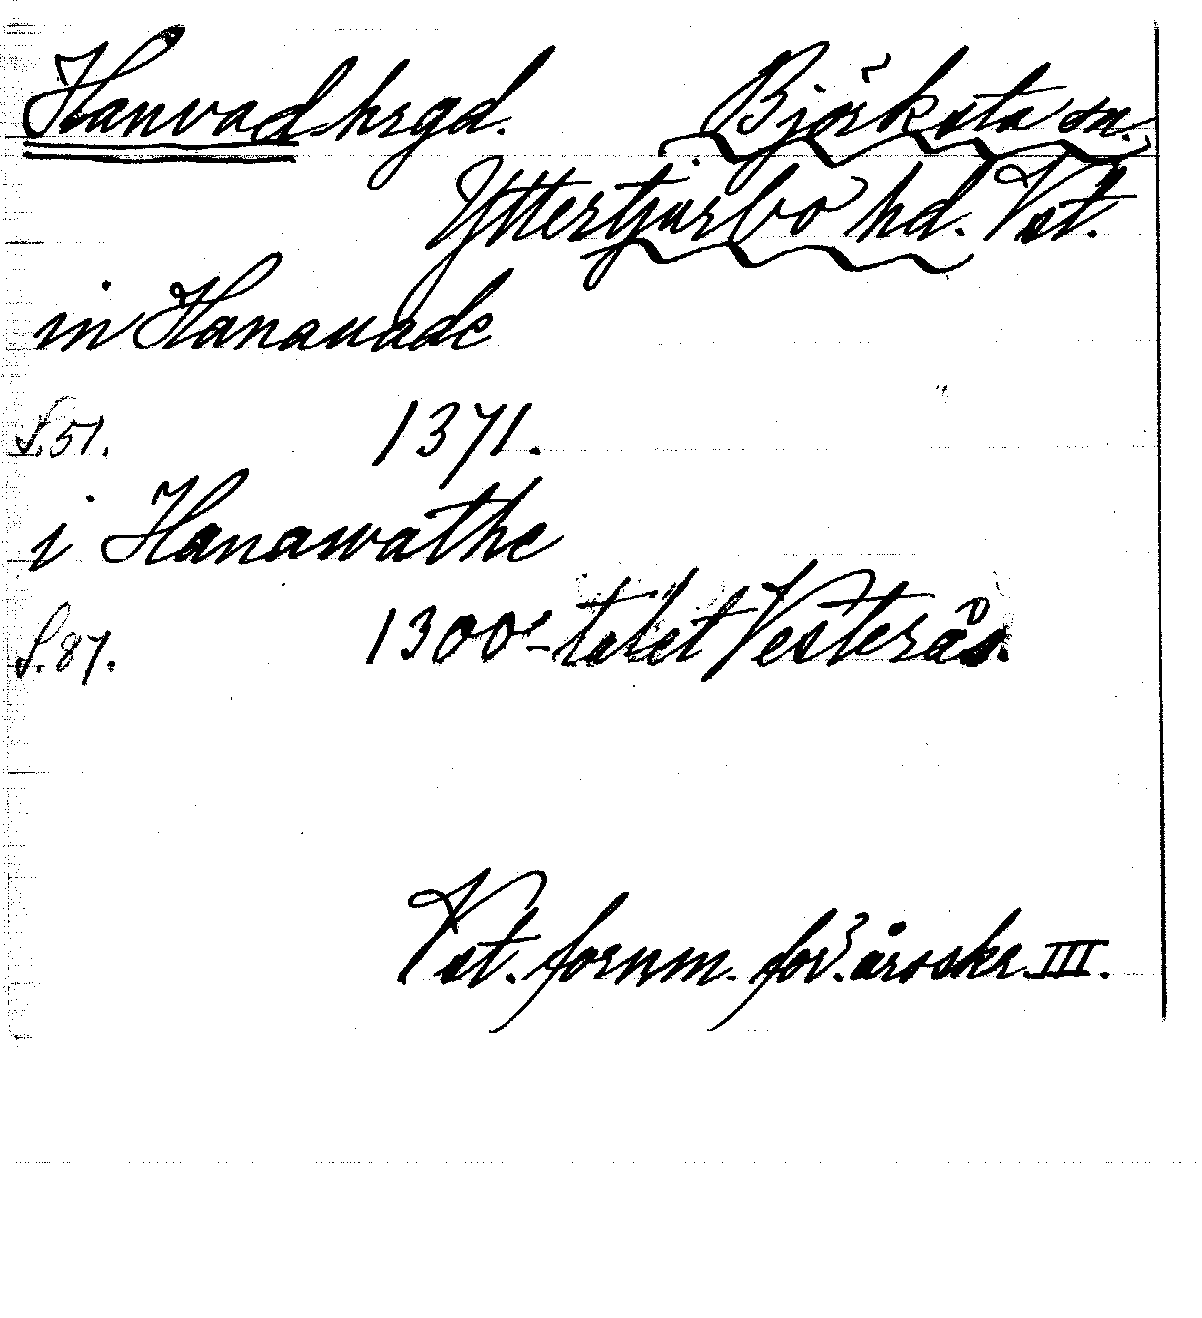 Hanvad hrgd. Björksta sn.
Yttertjurbo hd. Vst.
in Hanauade
S. 51. 1371.
i Hanawathe
S. 87. 1300-talet Vesterås.
Vst. fornm. för:s årsskr. III.